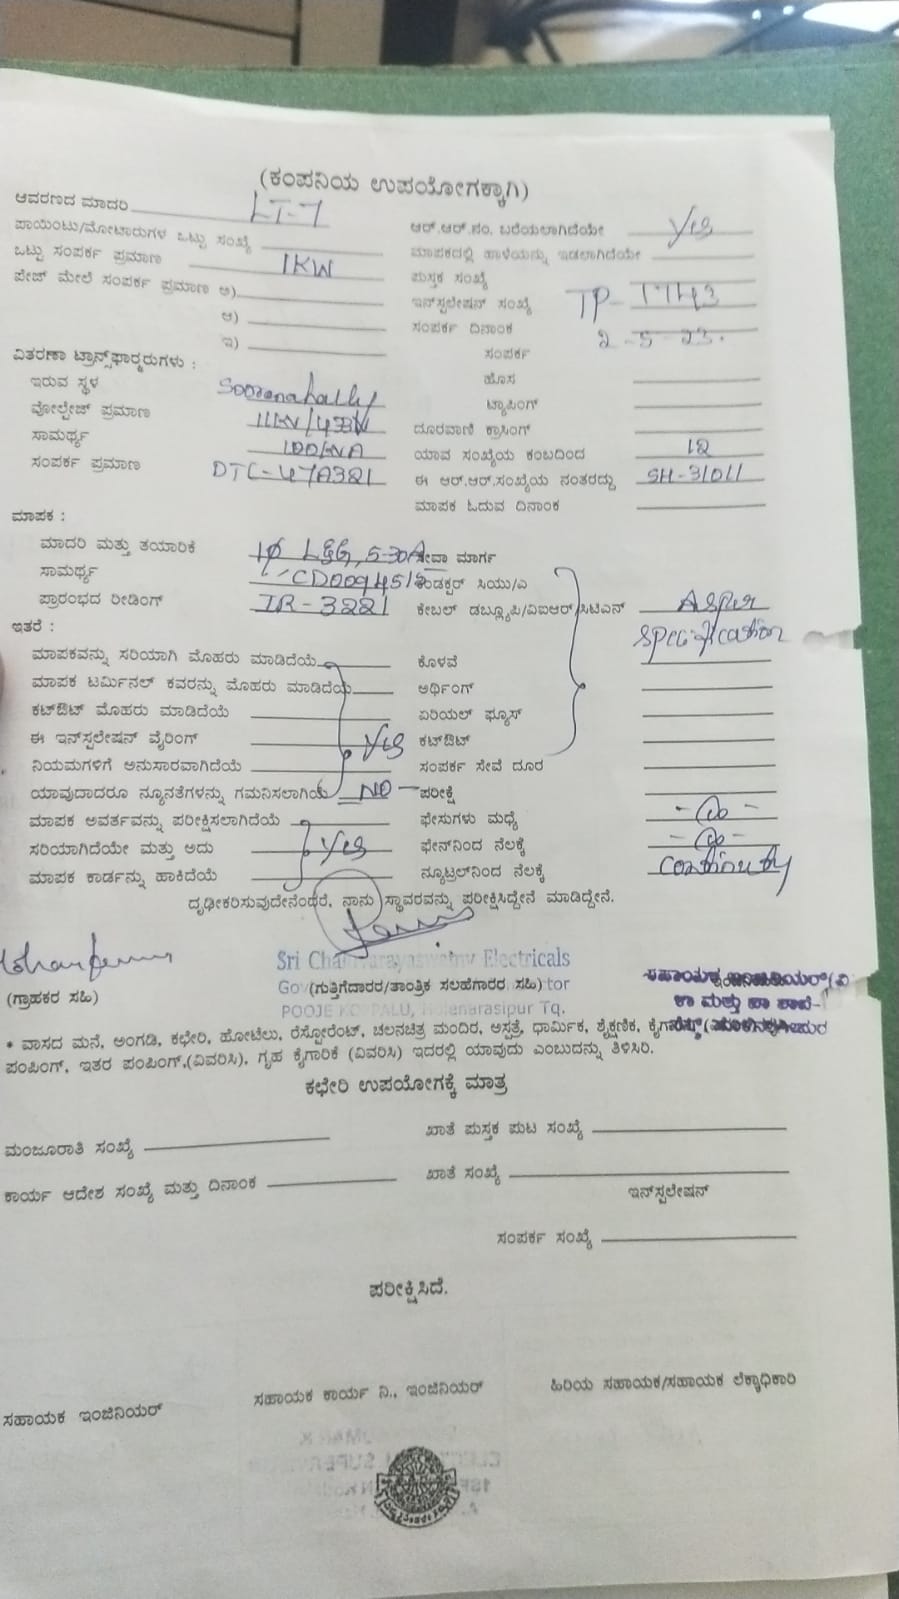 (ಕಂಪನಿಯ ಉಪಯೋಗಕ್ಕಾಗಿ)
ಆವರಣದ ಮಾದರಿ LT-7
ಪಾಯಿಂಟು/ಮೋಟಾರುಗಳ ಒಟ್ಟು ಸಂಖ್ಯೆ
ಒಟ್ಟು ಸಂಪರ್ಕ ಪ್ರಮಾಣ 1KW
ಪೇಜ್ ಮೇಲೆ ಸಂಪರ್ಕ ಪ್ರಮಾಣ ಅ)
ಆ)
ಇ)
ವಿತರಣಾ ಟ್ರಾನ್ಸ್‌ಫಾರ್‍ಮರುಗಳು :
ಇರುವ ಸ್ಥಳ Soomanahally
ವೋಲ್ಟೇಜ್ ಪ್ರಮಾಣ 11KV/433V
ಸಾಮರ್ಥ್ಯ 100KVA
ಸಂಪರ್ಕ ಪ್ರಮಾಣ DTC-47A321
ಆರ್.ಆರ್.ನಂ. ಬರೆಯಲಾಗಿದೆಯೇ Yes
ಮಾಪಕದಲ್ಲಿ ಹಾಳೆಯನ್ನು ಇಡಲಾಗಿದೆಯೇ
ಪುಸ್ತಕ ಸಂಖ್ಯೆ
ಇನ್‌ಸ್ಟಲೇಷನ್ ಸಂಖ್ಯೆ TP-17743
ಸಂಪರ್ಕ ದಿನಾಂಕ 2-5-23.
ಸಂಪರ್ಕ
ಹೊಸ
ಟ್ಯಾಪಿಂಗ್
ದೂರವಾಣಿ ಕ್ರಾಸಿಂಗ್
ಯಾವ ಸಂಖ್ಯೆಯ ಕಂಬದಿಂದ 12
ಈ ಆರ್.ಆರ್.ಸಂಖ್ಯೆಯ ನಂತರದ್ದು SH-31011
ಮಾಪಕ ಓದುವ ದಿನಾಂಕ
ಮಾಪಕ :
ಮಾದರಿ ಮತ್ತು ತಯಾರಿಕೆ 1φ L&G, 5-30A
ಸಾಮರ್ಥ್ಯ
ಪ್ರಾರಂಭದ ರೀಡಿಂಗ್ IR-3221
ಸೇವಾ ಮಾರ್ಗ
ಕಂಡಕ್ಟರ್ ಸಿಯು/ಎ
ಕೇಬಲ್ ಡಬ್ಲ್ಯೂಪಿ/ವಿಐಆರ್/ಸಿಟಿಎಸ್ As per
specification
ಇತರೆ :
ಮಾಪಕವನ್ನು ಸರಿಯಾಗಿ ಮೊಹರು ಮಾಡಿದೆಯೆ
ಮಾಪಕ ಟರ್ಮಿನಲ್ ಕವರನ್ನು ಮೊಹರು ಮಾಡಿದೆಯೆ
ಕಟ್‌ಔಟ್ ಮೊಹರು ಮಾಡಿದೆಯೆ
ಈ ಇನ್‌ಸ್ಟಲೇಷನ್ ವೈರಿಂಗ್ Yes
ನಿಯಮಗಳಿಗೆ ಅನುಸಾರವಾಗಿದೆಯೆ
ಯಾವುದಾದರೂ ನ್ಯೂನತೆಗಳನ್ನು ಗಮನಿಸಲಾಗಿಯೆ NO
ಮಾಪಕ ಅವರ್ತವನ್ನು ಪರೀಕ್ಷಿಸಲಾಗಿದೆಯೆ
ಸರಿಯಾಗಿದೆಯೇ ಮತ್ತು ಅದು Yes
ಮಾಪಕ ಕಾರ್ಡನ್ನು ಹಾಕಿದೆಯೆ
ಕೊಳವೆ
ಅರ್ಥಿಂಗ್
ಏರಿಯಲ್ ಫ್ಯೂಸ್
ಕಟ್‌ಔಟ್
ಸಂಪರ್ಕ ಸೇವೆ ದೂರ
ಪರೀಕ್ಷೆ
ಫೇಸುಗಳು ಮಧ್ಯೆ
ಫೇಸ್‌ನಿಂದ ನೆಲಕ್ಕೆ
ನ್ಯೂಟ್ರಲ್‌ನಿಂದ ನೆಲಕ್ಕೆ continuity
ದೃಢೀಕರಿಸುವುದೇನೆಂದರೆ, ನಾನು ಸ್ಥಾವರವನ್ನು ಪರೀಕ್ಷಿಸಿದ್ದೇನೆ ಮಾಡಿದ್ದೇನೆ.
Electricals
(ಗ್ರಾಹಕರ ಸಹಿ)
(ಗುತ್ತಿಗೆದಾರರ/ತಾಂತ್ರಿಕ ಸಲಹೆಗಾರರ ಸಹಿ)
Holenarasipur Tq.
* ವಾಸದ ಮನೆ, ಅಂಗಡಿ, ಕಛೇರಿ, ಹೋಟೆಲು, ರೆಸ್ಟೋರೆಂಟ್, ಚಲನಚಿತ್ರ ಮಂದಿರ, ಅಸ್ಪತ್ರೆ, ಧಾರ್ಮಿಕ, ಶೈಕ್ಷಣಿಕ,
ಪಂಪಿಂಗ್, ಇತರ ಪಂಪಿಂಗ್,(ವಿವರಿಸಿ). ಗೃಹ ಕೈಗಾರಿಕೆ (ವಿವರಿಸಿ) ಇದರಲ್ಲಿ ಯಾವುದು ಎಂಬುದನ್ನು ತಿಳಿಸಿರಿ.
ಕಛೇರಿ ಉಪಯೋಗಕ್ಕೆ ಮಾತ್ರ
ಮಂಜೂರಾತಿ ಸಂಖ್ಯೆ
ಖಾತೆ ಪುಸ್ತಕ ಪುಟ ಸಂಖ್ಯೆ
ಕಾರ್ಯ ಆದೇಶ ಸಂಖ್ಯೆ ಮತ್ತು ದಿನಾಂಕ
ಖಾತೆ ಸಂಖ್ಯೆ
ಇನ್‌ಸ್ಟಲೇಷನ್
ಸಂಪರ್ಕ ಸಂಖ್ಯೆ
ಪರೀಕ್ಷಿಸಿದೆ.
ಸಹಾಯಕ ಇಂಜಿನಿಯರ್
ಸಹಾಯಕ ಕಾರ್ಯ ನಿ., ಇಂಜಿನಿಯರ್
ಹಿರಿಯ ಸಹಾಯಕ/ಸಹಾಯಕ ಲೆಕ್ಕಾಧಿಕಾರಿ